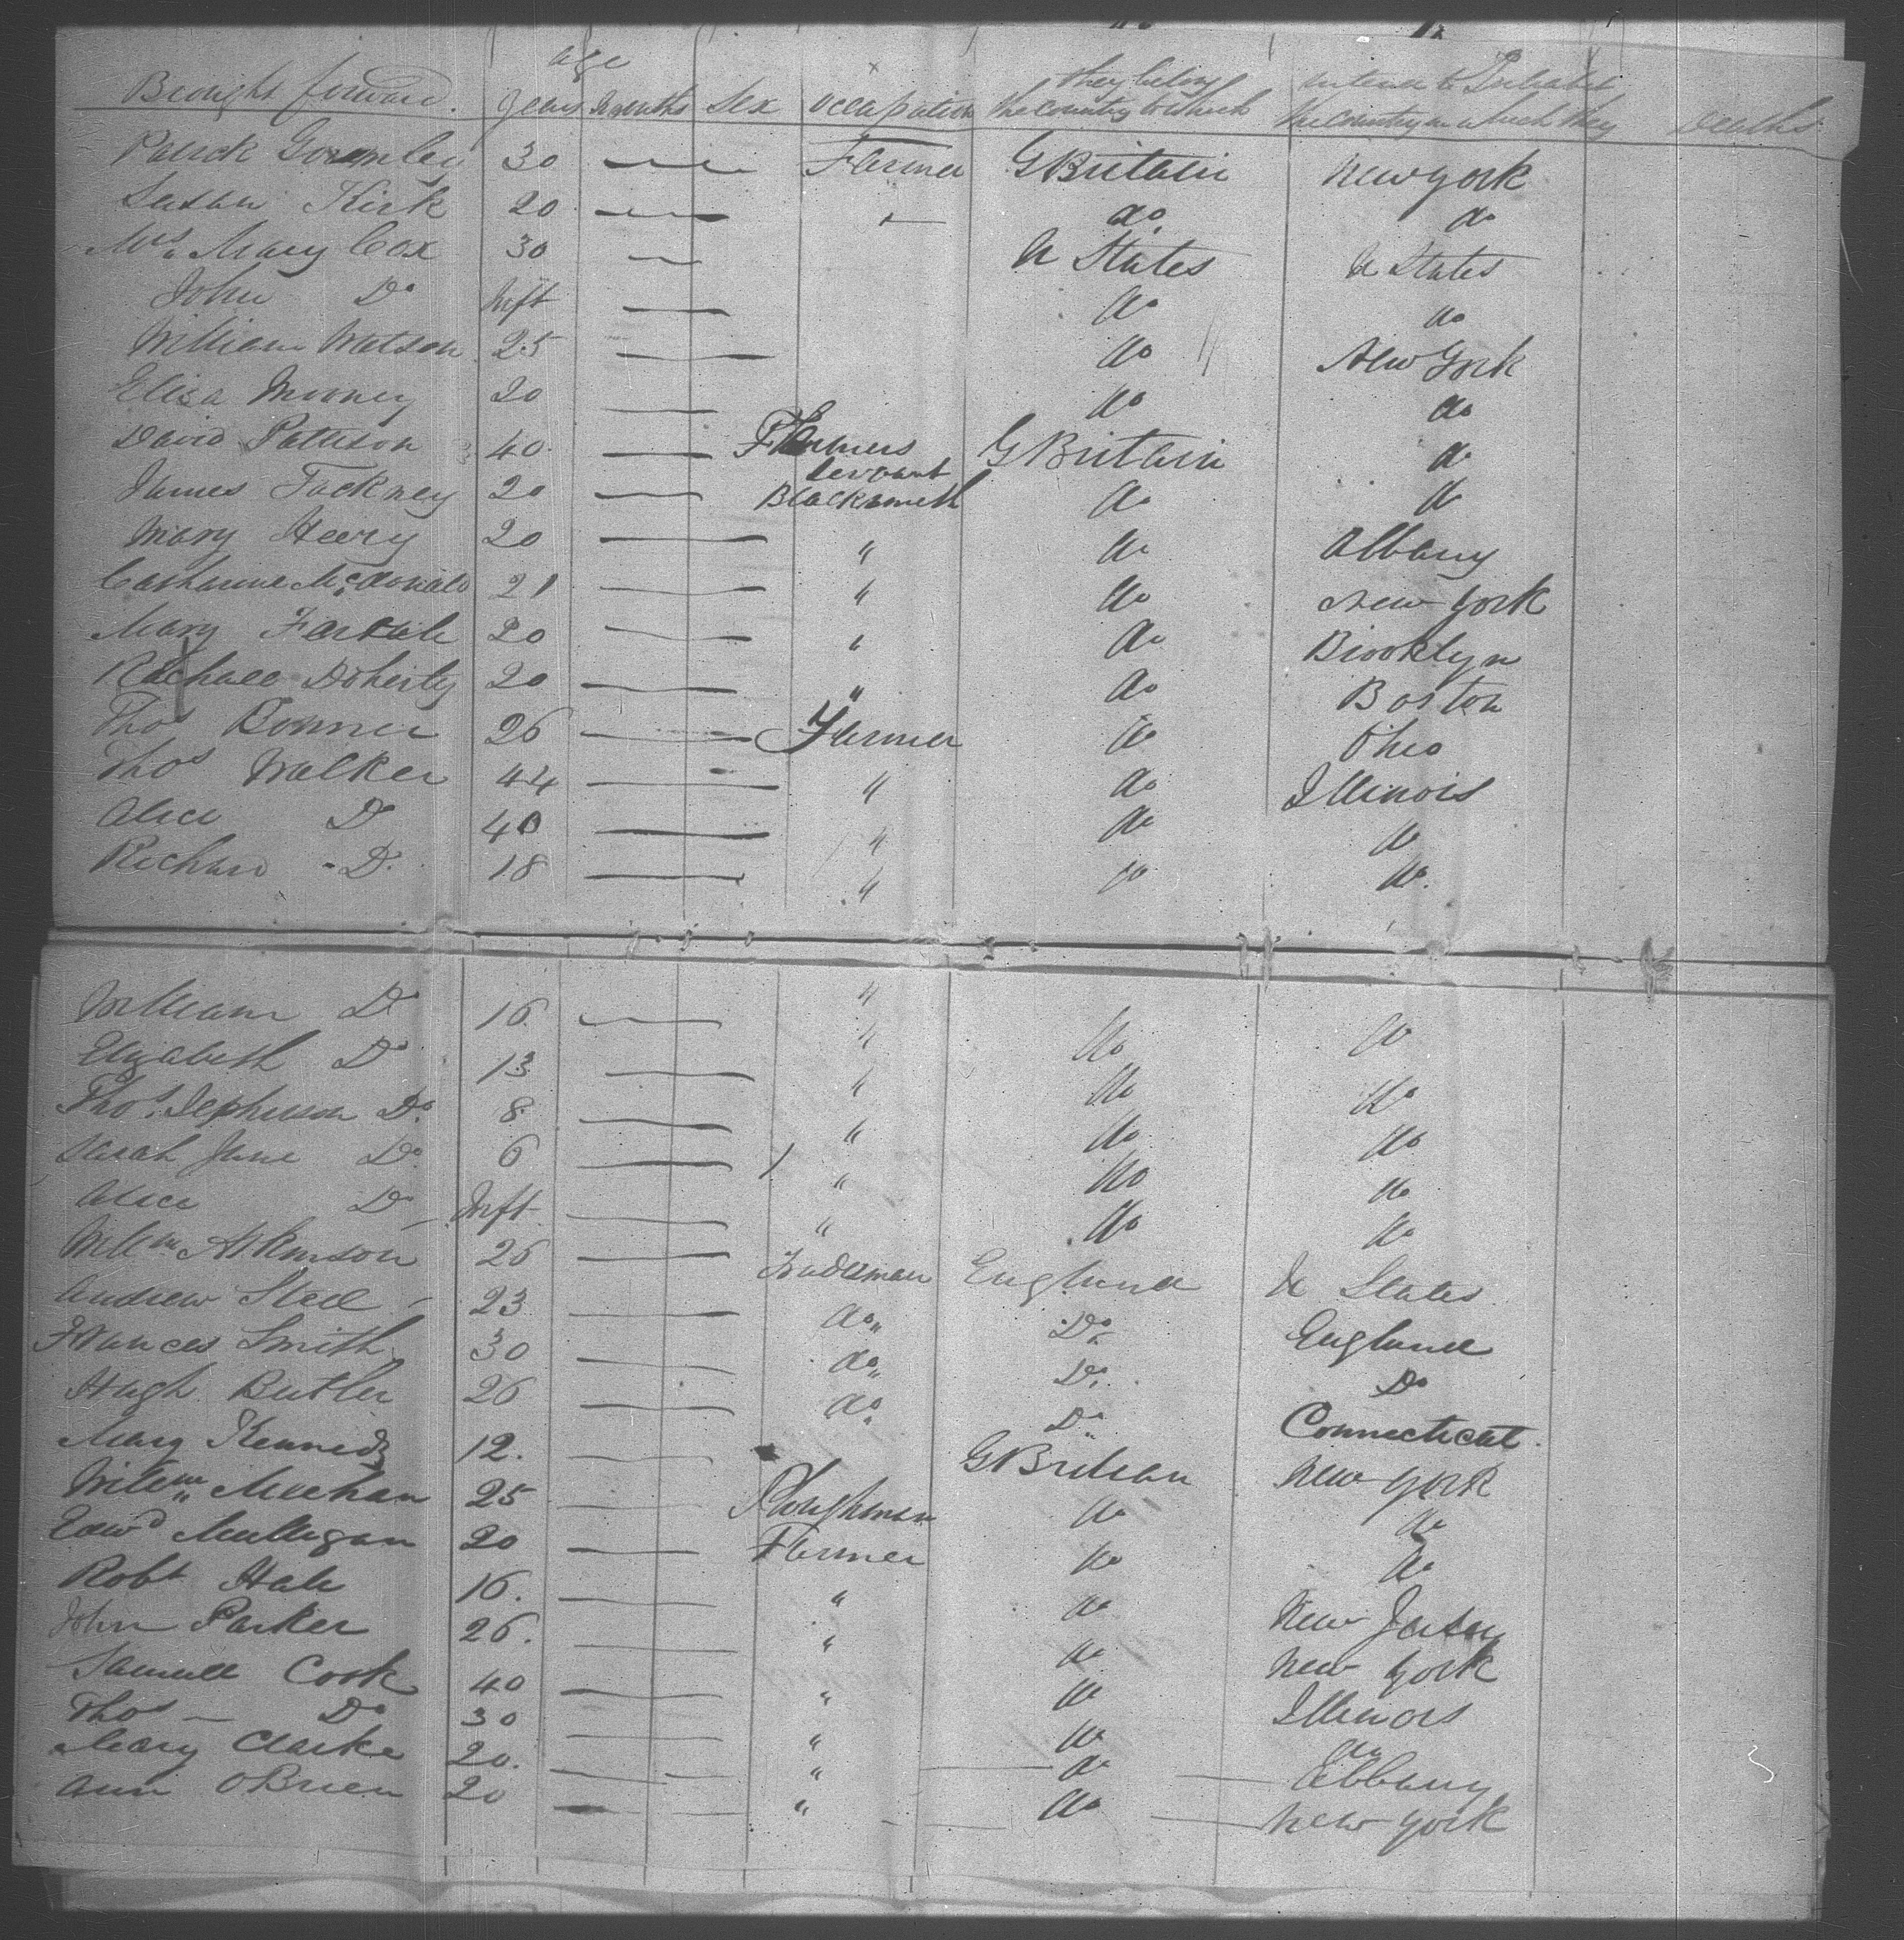 age
Brought forward. Years Months Sex occupation the country to which they belong the Country in which they intend to Inhabit Deaths
Patrick Gormley 30 Farmer G Britain New york
Susan Kirk 20 do do
Mrs. Mary Cox 30 U States U States
John Do Inft do do
William Watson 25 do New York
Eliza Mooney 20 do do
David Pattison 40 Farmers servant G Britain do
James Tackney 20 Blacksmith do do
Mary Heery 20 " do Albany
Catharine McDonald 21 " do New york
Mary 20 " do Brooklyn
Rachael Doherty 20 " do Boston
Thos Bonner 26 Farmer do Ohio
Thos Walker 44 " do Illinois
Alice Do 40 " do do
Richard - Do. 18 " do do.
William Do 16 " do do
Elizabeth Do 13 " do do
Thos. Do. 8 " do do
Sarah Jane Do. 6 " do do
Alice Do Inft " do do
Willm Atkinson 26 Tradesman England U States
Andrew Steel 23 do " Do England
Frances Smith 30 do " Do. Do
Hugh Butler 26 do Do Connecticut.
Mary Kennedy 12. G Britian New york
Willm Meehan 25 Ploughman do do
Edwd Mulligan 20 Farmer do do
Robt Hale 16. " do New Jersey
John Parker 26. " do New york
Samuel Cook 40 " do Illinois
Thos — Do 30 " do do
Mary Clarke 20. " do Albany
Ann OBrien 20 " do New york